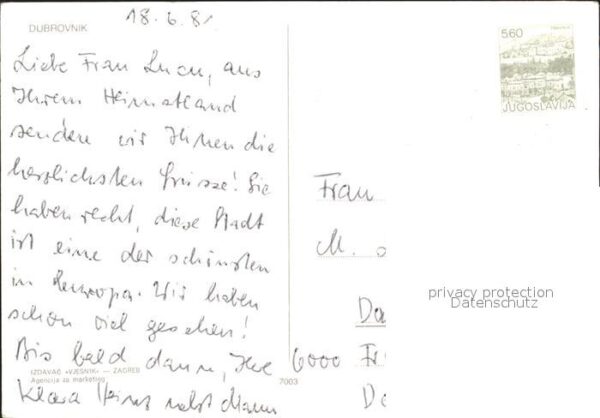 18.6.81
DUBROVNIK
Liebe Frau Lucu, aus
Ihrem Heimatland
senden wir Ihnen die
herzlichsten Grüsse! Sie
haben recht, diese Stadt
ist eine der schönsten
in Europa. Wir haben
schon viel gesehen!
Bis bald dann, Ihre
Klara Heinz nebst Mann
IZDAVAČ »VJESNIK« — ZAGREB
Agencija za marketing
7003
5,60
JUGOSLAVIJA
Frau
M.
Da
6000 Fr
Da
privacy protection
Datenschutz